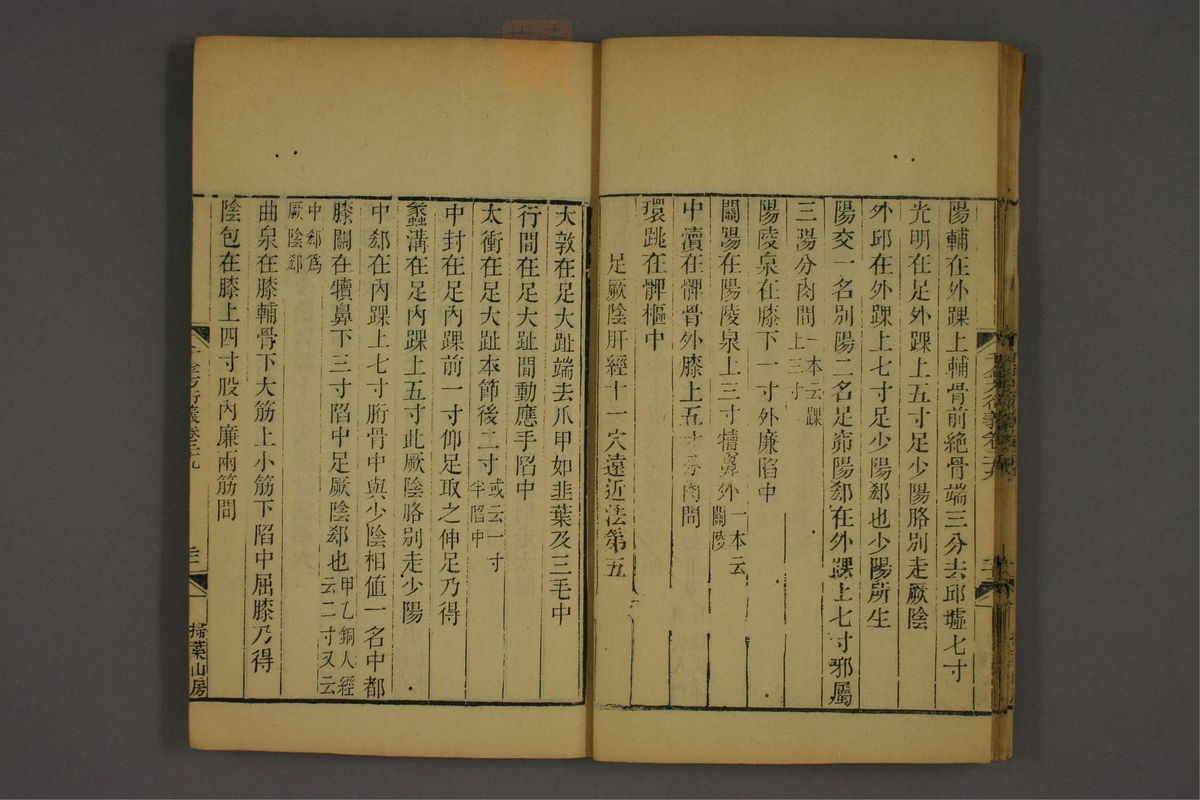 陽輔在外踝上輔骨前絶骨端三分去邱墟七寸
光明在足外踝上五寸足少陽胳別走厥陰
外邱在外踝上七寸足少陽郄也少陽所生
陽交一名別陽二名足窌陽郄在外踝上七寸邪屬
三陽分肉間一本云踝上三寸
陽陵泉在膝下一寸外廉陷中
關陽在陽陵泉上三寸犢鼻外一本云關陵
中瀆在髀骨外膝上五寸分肉間
環跳在髀樞中
足厥陰肝經十一穴遠近法第五
大敦在足大趾端去爪甲如韭葉及三毛中
行間在足大趾間動應手陷中
太衝在足大趾本節後二寸或云一寸半陷中
中封在足內踝前一寸仰足取之伸足乃得
蠡溝在足內踝上五寸此厥陰胳別走少陽
中郄在內踝上七寸胻骨中與少陰相值一名中都
膝關在犢鼻下三寸陷中足厥陰郄也甲乙銅人經云二寸又云
中郄為厥陰郄
曲泉在膝輔骨下大筋上小筋下陷中屈膝乃得
陰包在膝上四寸股內廉兩筋間
千金方衍義卷二十九
掃葉山房